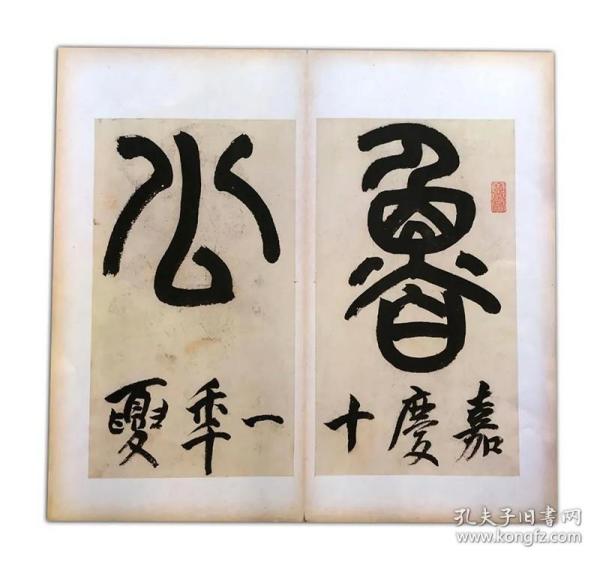 魯
嘉慶十
公
一秊夓
孔夫子旧书网
www.kongfz.com